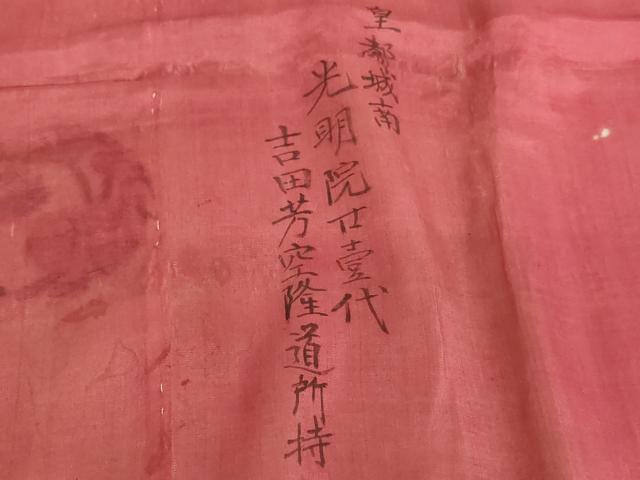 皇都城南
光明院廿壹代
吉田芳空隆道所持